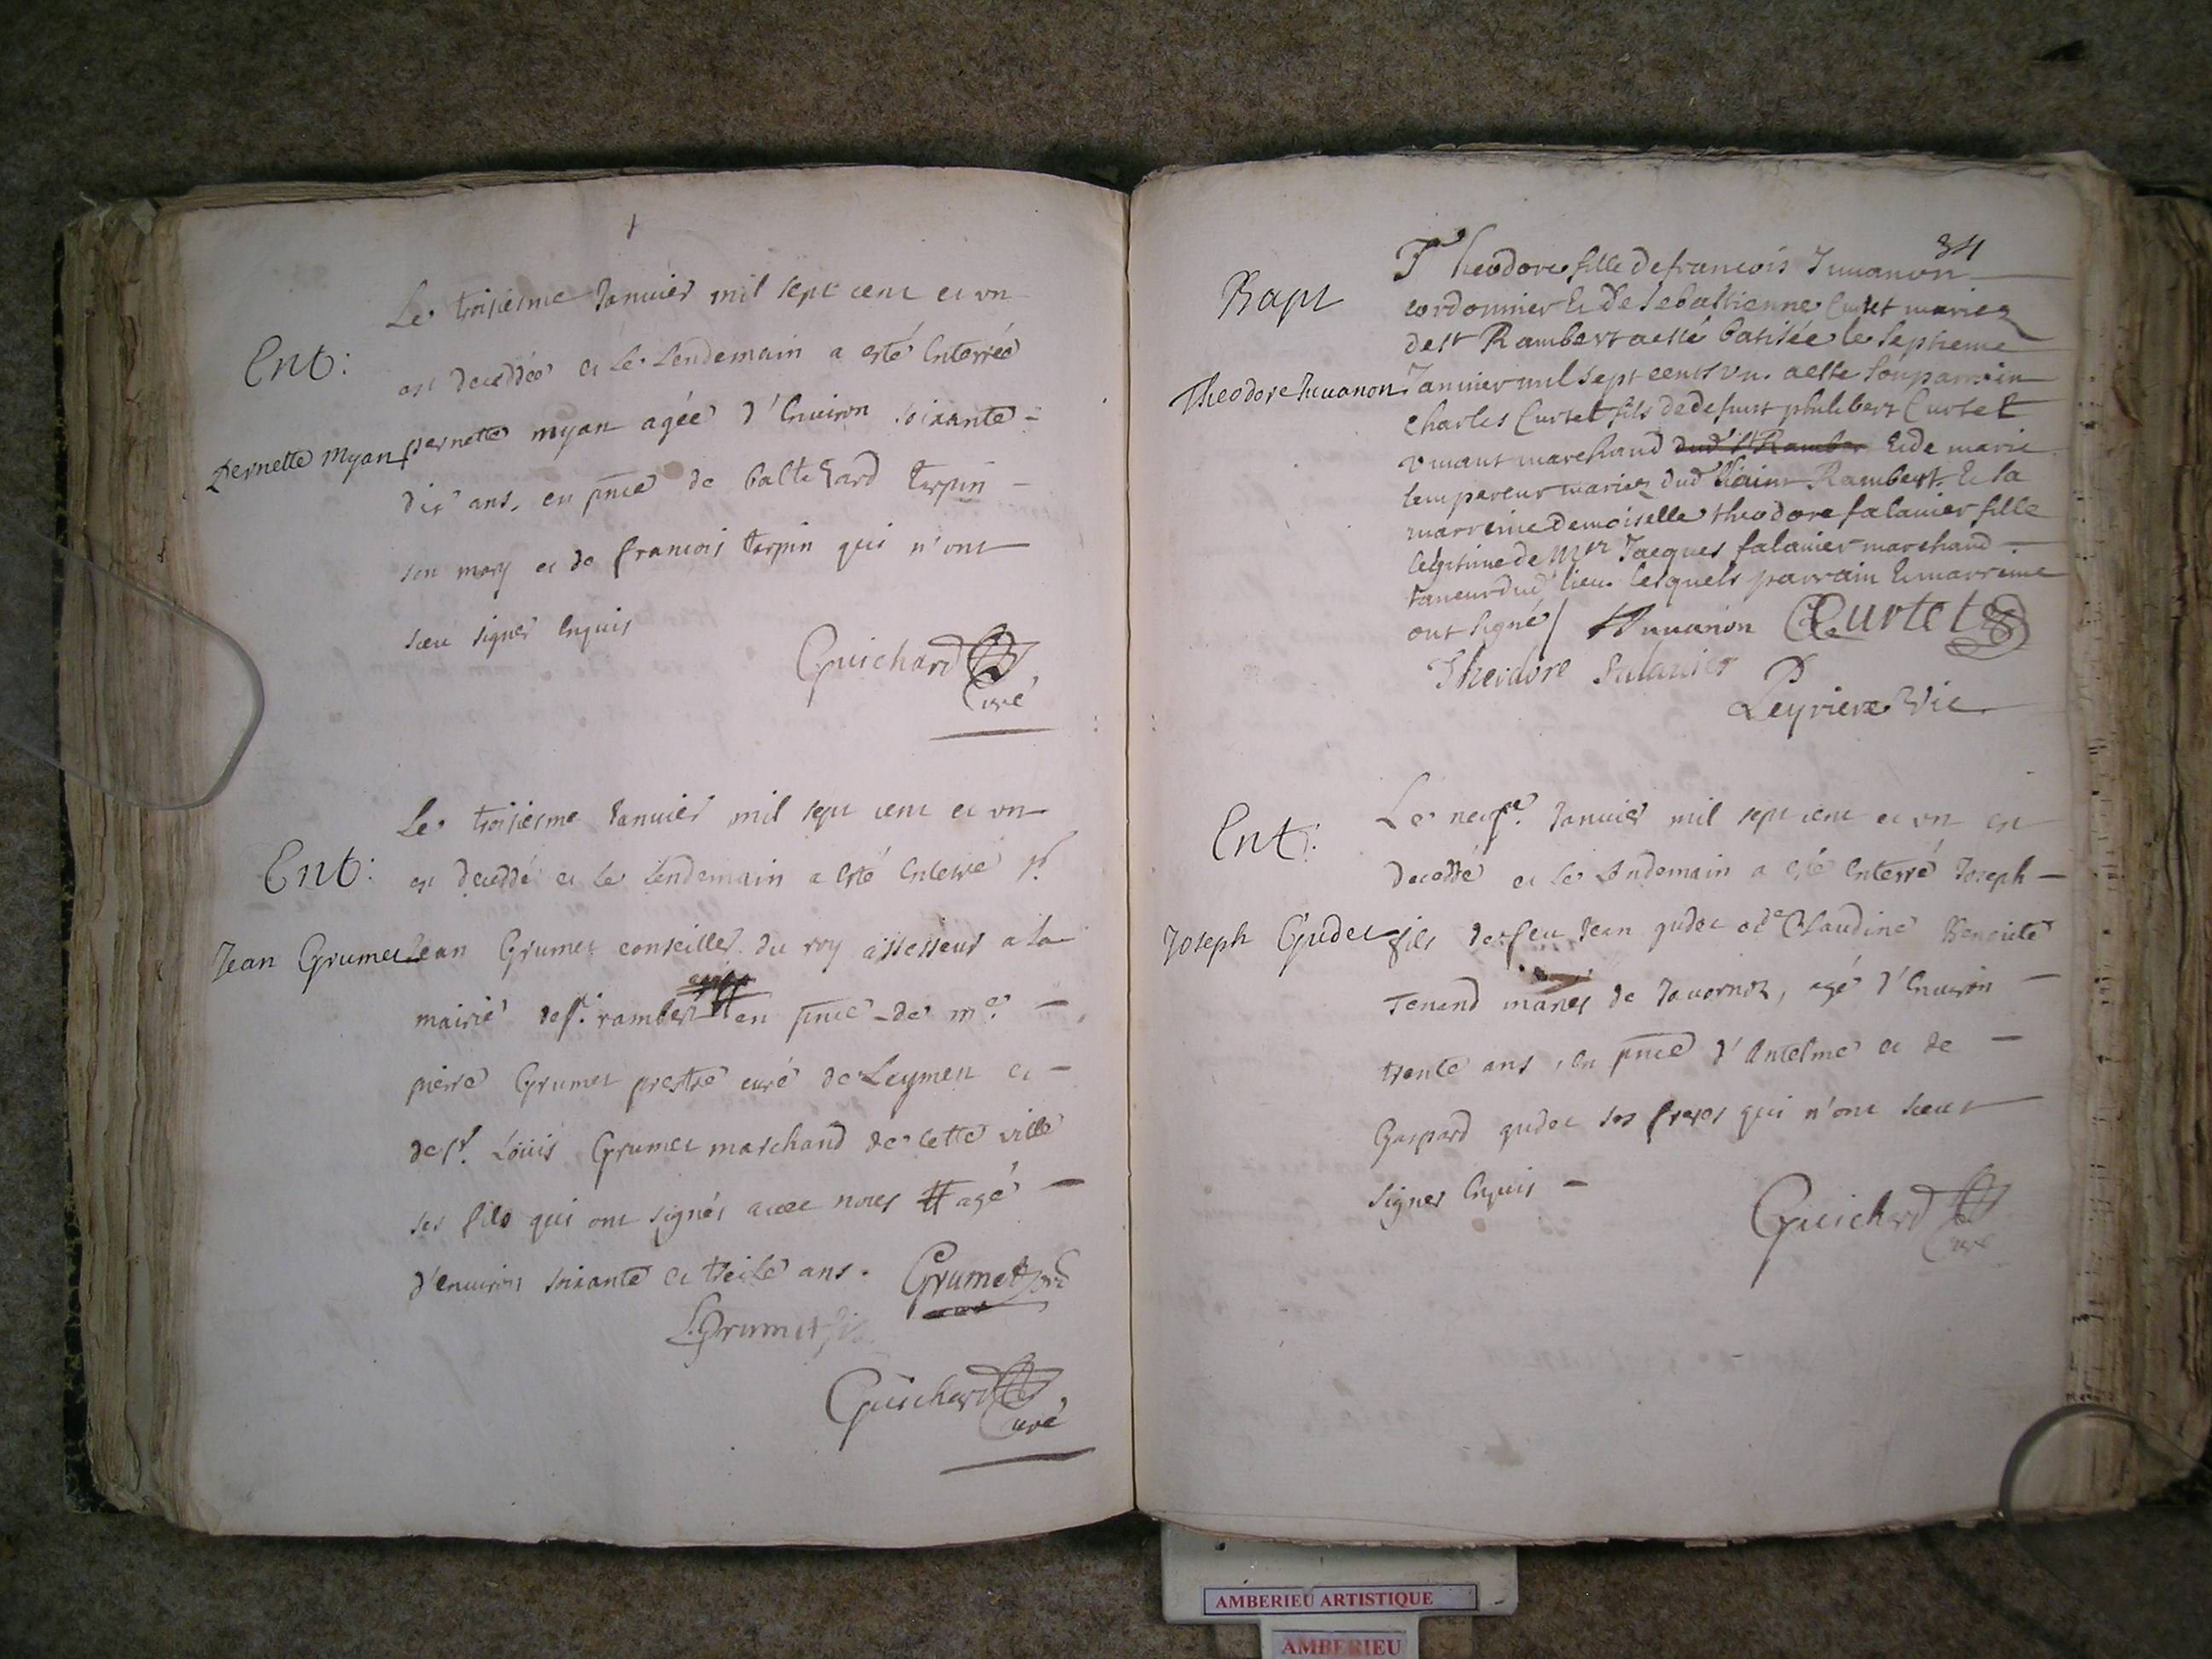 Le troisieme Janvier mil sept cent et vn
Ent:
est decedée et le lendemain a esté Enterrée
Pernette Myan
pernette myan agée d'Enuiron soixante -
dix ans, en pnce de baltesard terpin -
son mary et de françois terpin qui n'ont
sceu signer Enquis
Guichard
Curé
Le troisieme Janvier mil sept cent et vn
Ent:
est decedé et le lendemain a esté Enterré sr.
Jean Grumet
Jean Grumet conseiller du roy assesseur a la
mairie de st. rambert # en pnce de mre. -
pierre Grumet prestre curé de Leyment et -
de sr. Loüis Grumet marchand de cette ville
ses fils qui ont signés auec nous # agé -
d'enuiron soixante et treise ans. Grumet
L. Grumet fils
Guichard
Curé
34
Theodore fille de françois Juuanon
Bapt
cordonnier & de sebastienne Curtet mariez
de st Rambert a esté batisée le septieme
Theodore Juuanon
Januier mil sept cents vn. a esté son parrein
Charles Curtet fils de defunt philibert Curtet
viuant marchand dud' st Rambert & de marie
lempereur mariez dud' saint Rambert & la
marreine demoiselle theodore falauier fille
legitime de Mre Jacques falauier marchand
taneur dud' lieu. lesquels parrain & marreine
ont signé / Juuanon CCurtet
Theodore falauier
Peyrieve Vic.
Le neufe. Januier mil sept cent et vn est
Ent:
decedé et le lendemain a esté Enterré Joseph -
Joseph Gudet
fils de feu Jean gudet et de Claudine Benoite
Tenand mariés de Jauornoz, agé d'Enuiron -
trente ans, en pnce d'Antelme et de -
Gaspard gudet ses freres qui n'ont sceut
signer Enquis -
Guichard
Curé
AMBERIEU ARTISTIQUE
AMBERIEU